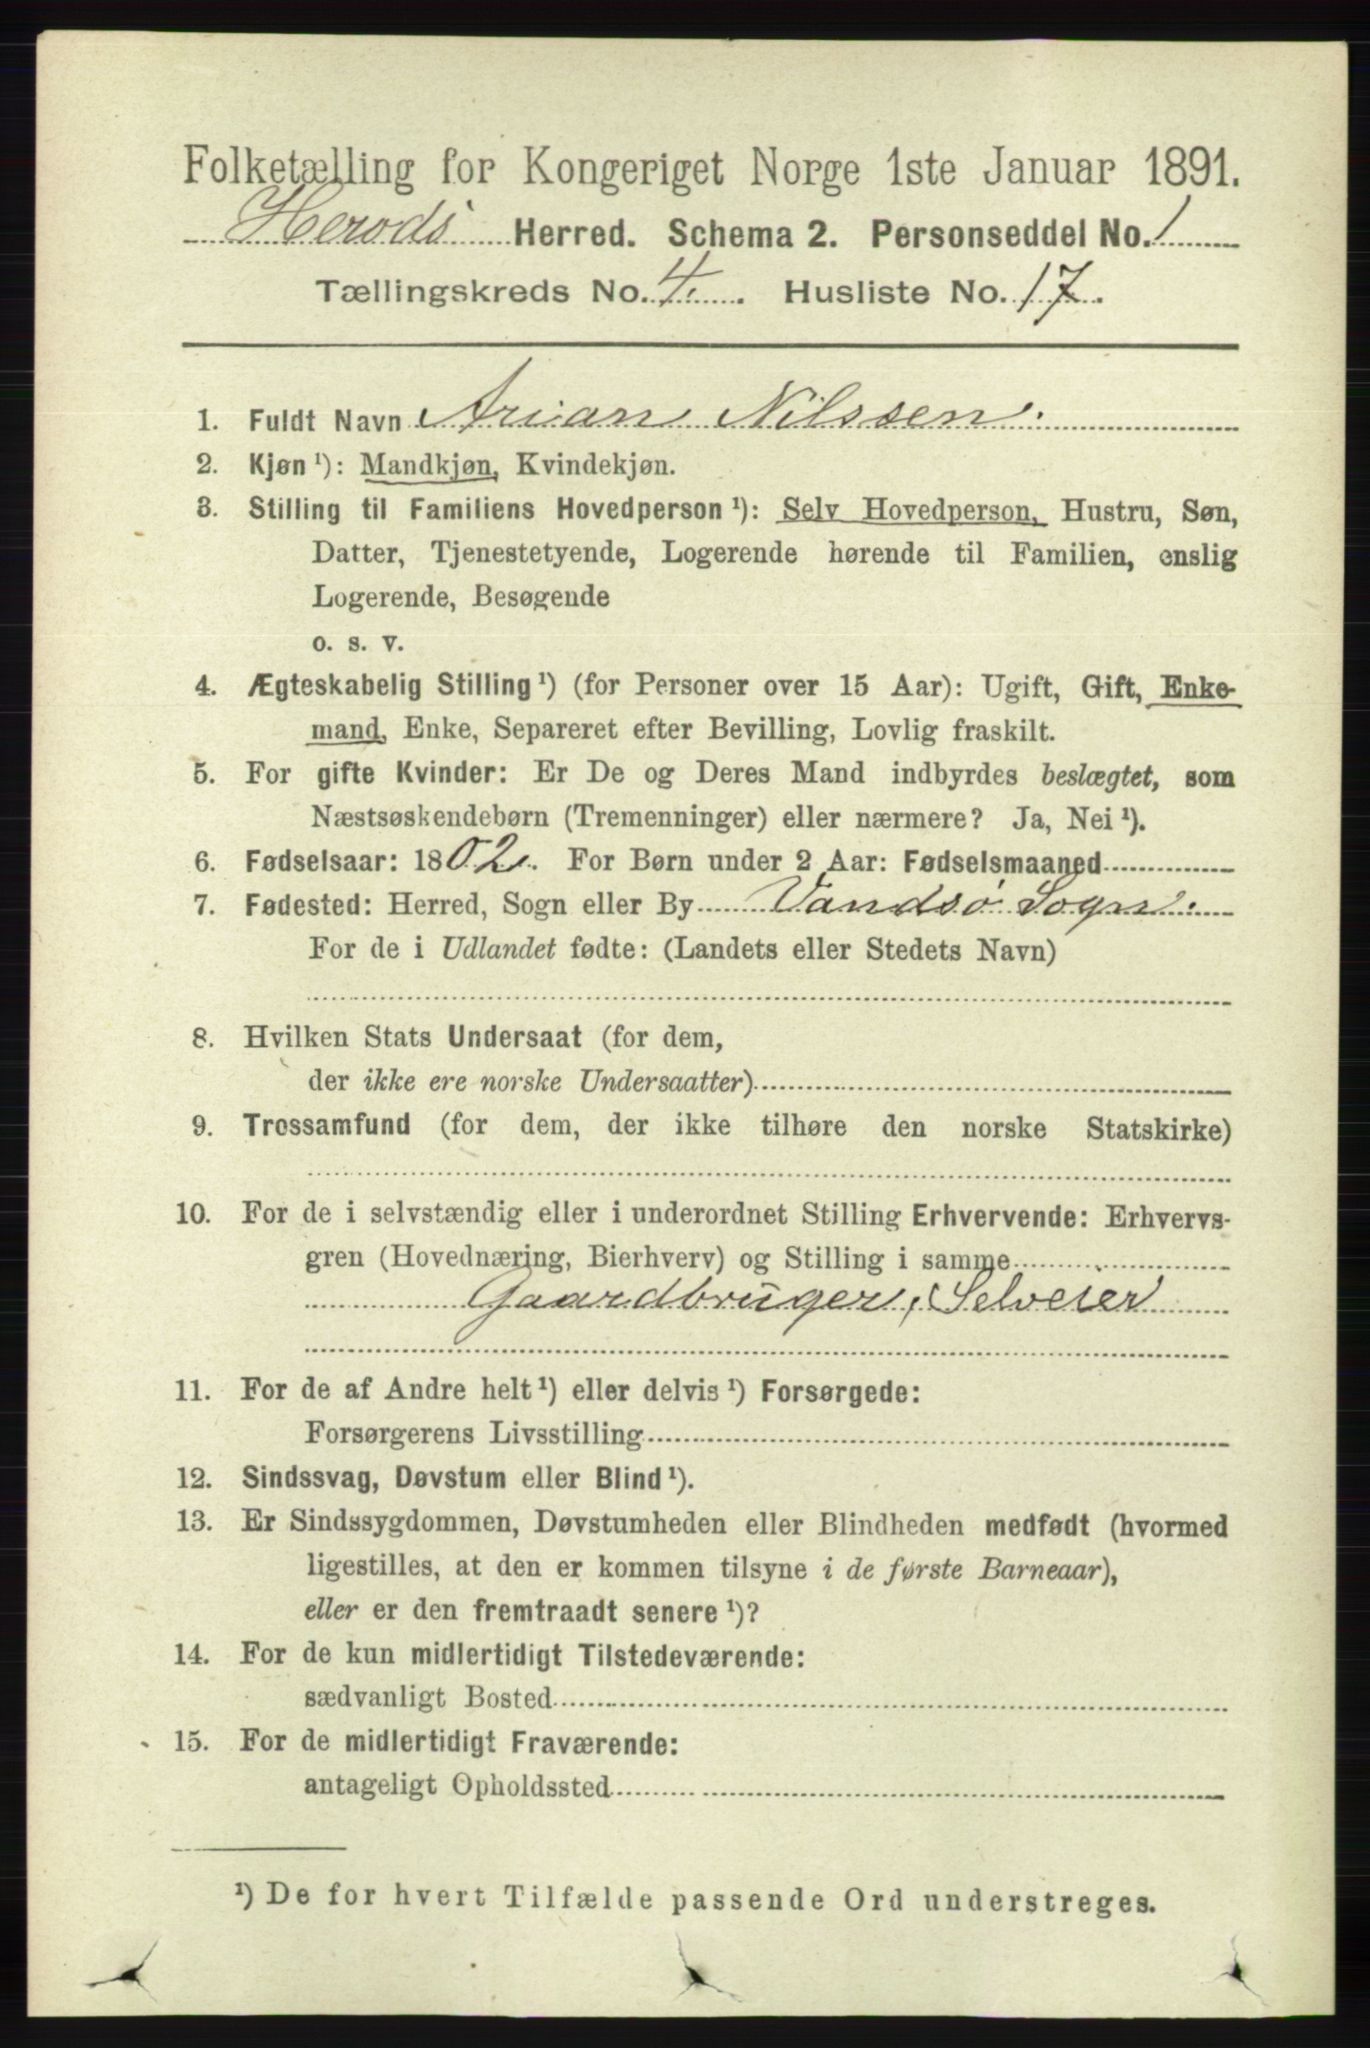 Folketælling for Kongeriget Norge 1ste Januar 1891.
Herods Herred. Schema 2. Personseddel No. 1
Tællingskreds No. 4. Husliste No. 17.
1. Fuldt Navn Arian Nilssen.
2. Kjøn ¹): Mandkjøn, Kvindekjøn.
3. Stilling til Familiens Hovedperson ¹): Selv Hovedperson, Hustru, Søn,
Datter, Tjenestetyende, Logerende hørende til Familien, enslig
Logerende, Besøgende
o. s. v.
4. Ægteskabelig Stilling ¹) (for Personer over 15 Aar): Ugift, Gift, Enke-
mand, Enke, Separeret efter Bevilling, Lovlig fraskilt.
5. For gifte Kvinder: Er De og Deres Mand indbyrdes beslægtet, som
Næstsøskendebørn (Tremenninger) eller nærmere? Ja, Nei ¹).
6. Fødselsaar: 1802. For Børn under 2 Aar: Fødselsmaaned
7. Fødested: Herred, Sogn eller By Vandsø Sogn.
For de i Udlandet fødte: (Landets eller Stedets Navn)
8. Hvilken Stats Undersaat (for dem,
der ikke ere norske Undersaatter)
9. Trossamfund (for dem, der ikke tilhøre den norske Statskirke)
10. For de i selvstændig eller i underordnet Stilling Erhvervende: Erhvervs-
gren (Hovednæring, Bierhverv) og Stilling i samme
Gaardbruger, Selveier
11. For de af Andre helt ¹) eller delvis ¹) Forsørgede:
Forsørgerens Livsstilling
12. Sindssvag, Døvstum eller Blind ¹).
13. Er Sindssygdommen, Døvstumheden eller Blindheden medfødt (hvormed
ligestilles, at den er kommen tilsyne i de første Barneaar),
eller er den fremtraadt senere ¹)?
14. For de kun midlertidigt Tilstedeværende:
sædvanligt Bosted
15. For de midlertidigt Fraværende:
antageligt Opholdssted
¹) De for hvert Tilfælde passende Ord understreges.